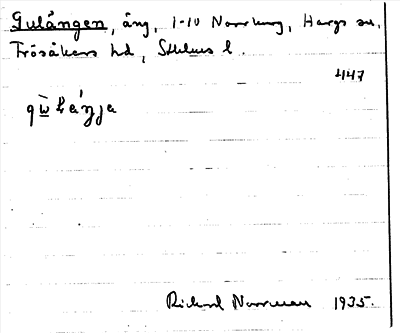 Gulängen, äng, 1-10 Norrby, Hargs sn,
Frösåkers hd, Sthlms l.
447
Richard Norrman 1935.